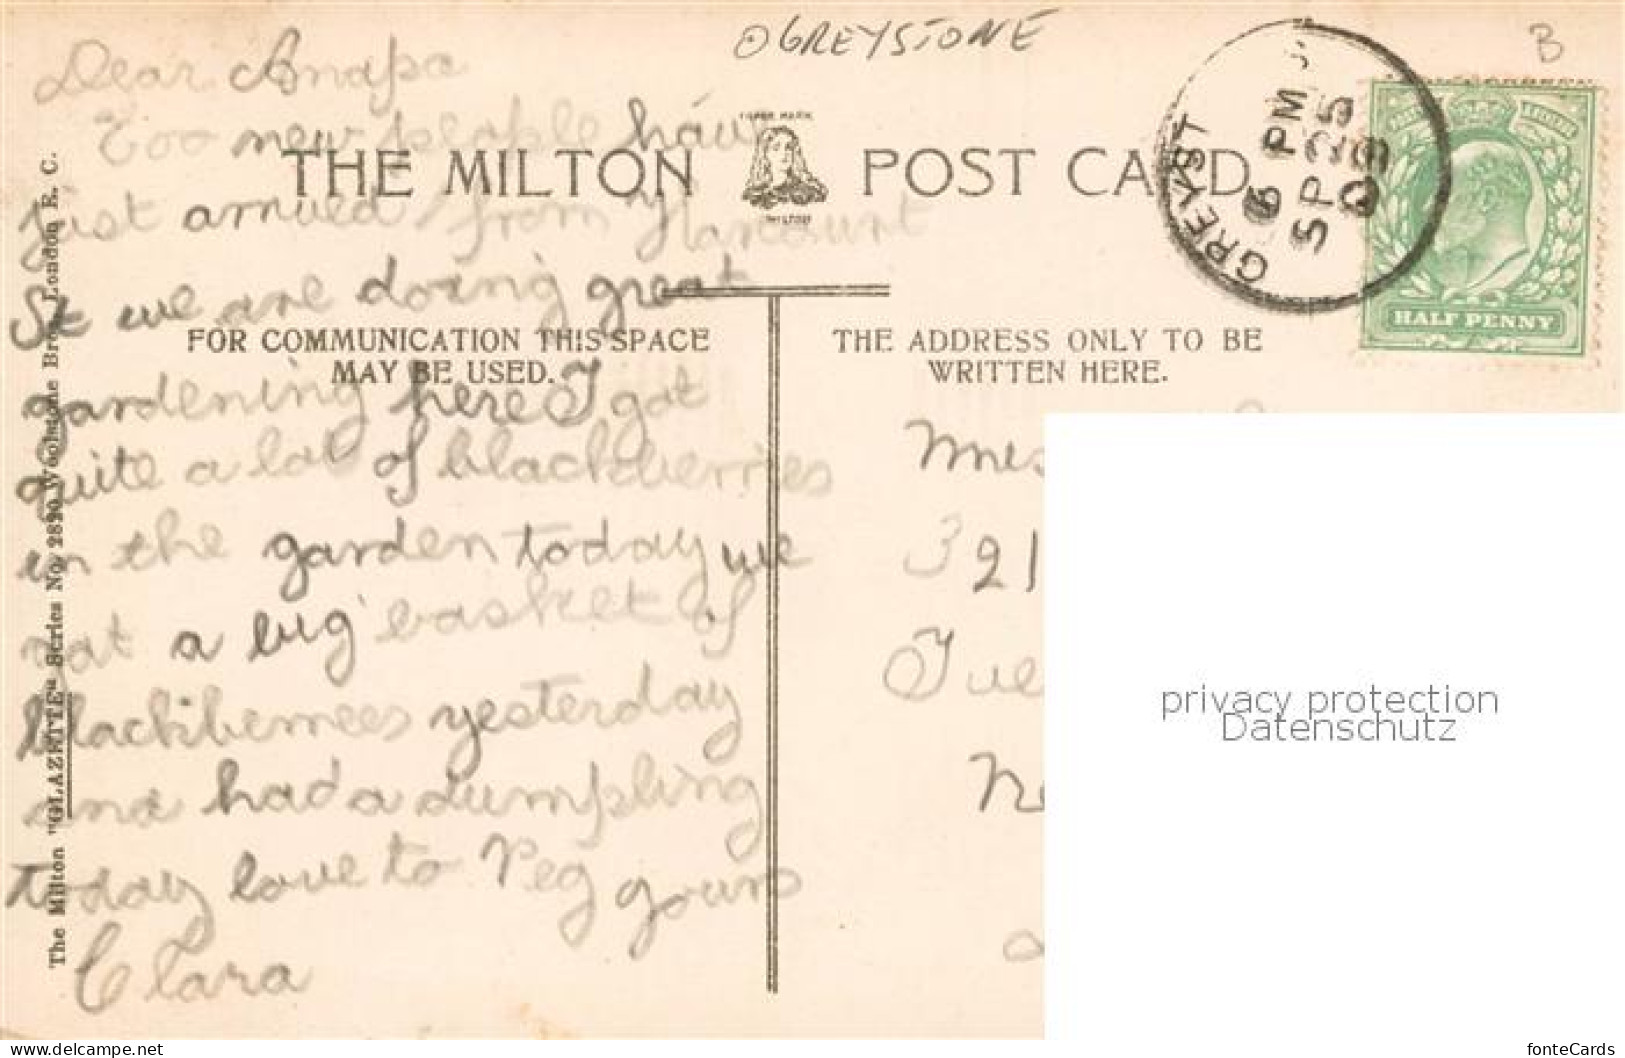 GREYSTONE
B
Dear
Too new people have
THE MILTON POST CARD
TRADE MARK
MILTON
just arrived from Harcourt
St we are doing great
FOR COMMUNICATION THIS SPACE
MAY BE USED.
gardening here I got
quite a lot of blackberries
in the garden today we
got a big basket of
blackiberrees yesterday
and had a dumpling
today love to Peg yours
Clara
The Milton "GLAZETTE" Series No. 2820 Woolstone Bros. London E. C.
GREYST
6 PM
SP 25
09
HALF PENNY
THE ADDRESS ONLY TO BE
WRITTEN HERE.
321
privacy protection
Datenschutz
www.delcampe.net
fonteCards